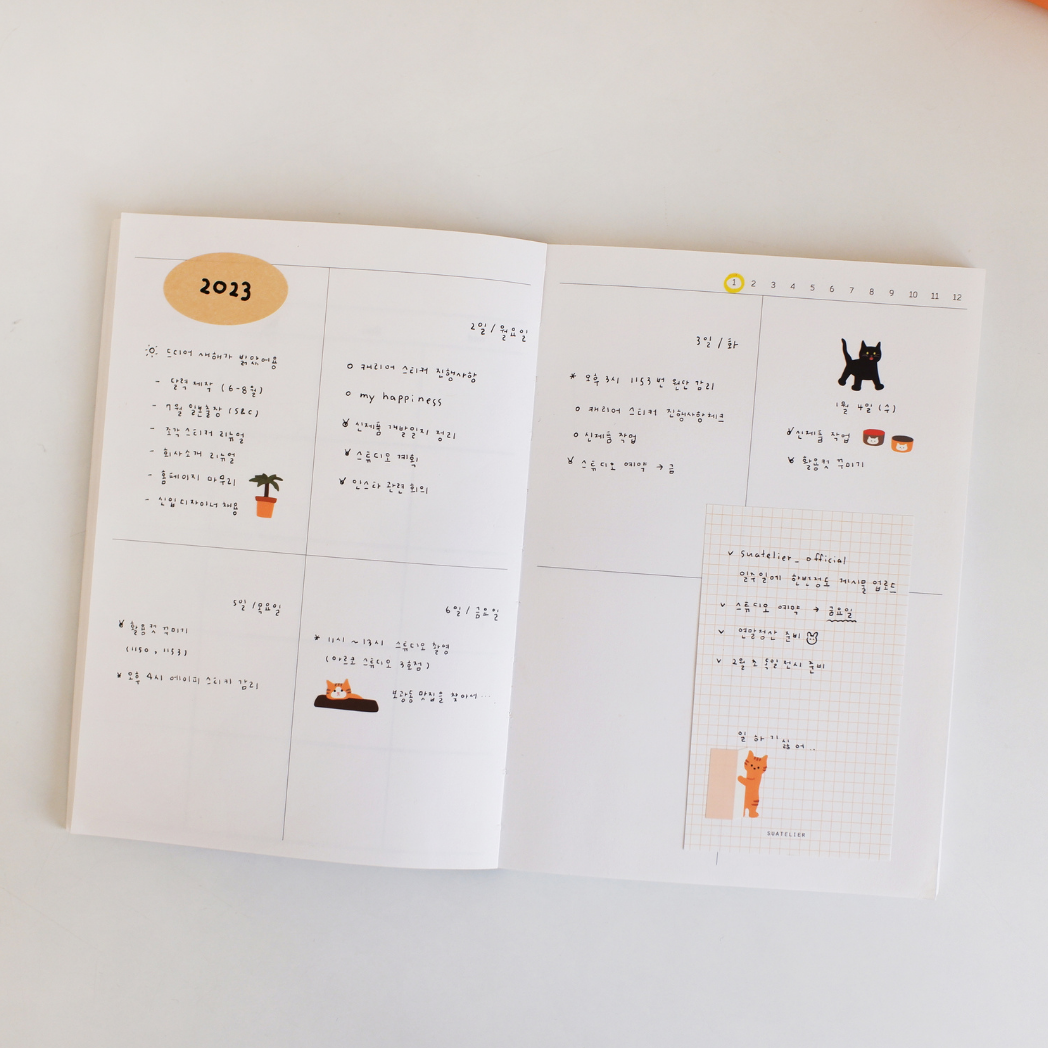 2023
드디어 새해가 밝았어용
- 달력 제작 (6-8월)
- 7월 일본출장 (S&C)
- 조각스티커 리뉴얼
- 회사소개 리뉴얼
- 홈페이지 마무리
- 신입디자이너 채용
2일 / 월요일
o 캐리어 스티커 진행사항
o my happiness
신제품 개발일지 정리
스튜디오 계획
인스타 관련 회의
5일 / 목요일
활용컷 꾸미기
(1150, 1153)
오후 4시 에이피 스티커 감리
6일 / 금요일
* 11시 ~ 13시 스튜디오 촬영
(아르코 스튜디오 3호점)
보광동 맛집을 찾아서...
1 2 3 4 5 6 7 8 9 10 11 12
3일 / 화
* 오후 3시 1153번 원단 감리
o 캐리어 스티커 진행사항체크
o 신제품 작업
스튜디오 예약 → 금
1월 4일 (수)
신제품 작업
활용컷 꾸미기
v suatelier_official
일주일에 한번정도 게시물 업로드
v 스튜디오 예약 → 금요일
v 연말정산 준비
v 2월 초 독일전시 준비
일 하기 싫어..
SUATELIER